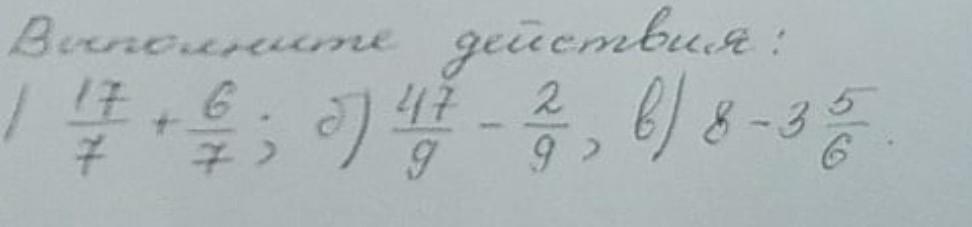 Выполните действия:
) 17/7 + 6/7; б) 47/9 - 2/9, в) 8 - 3 5/6.